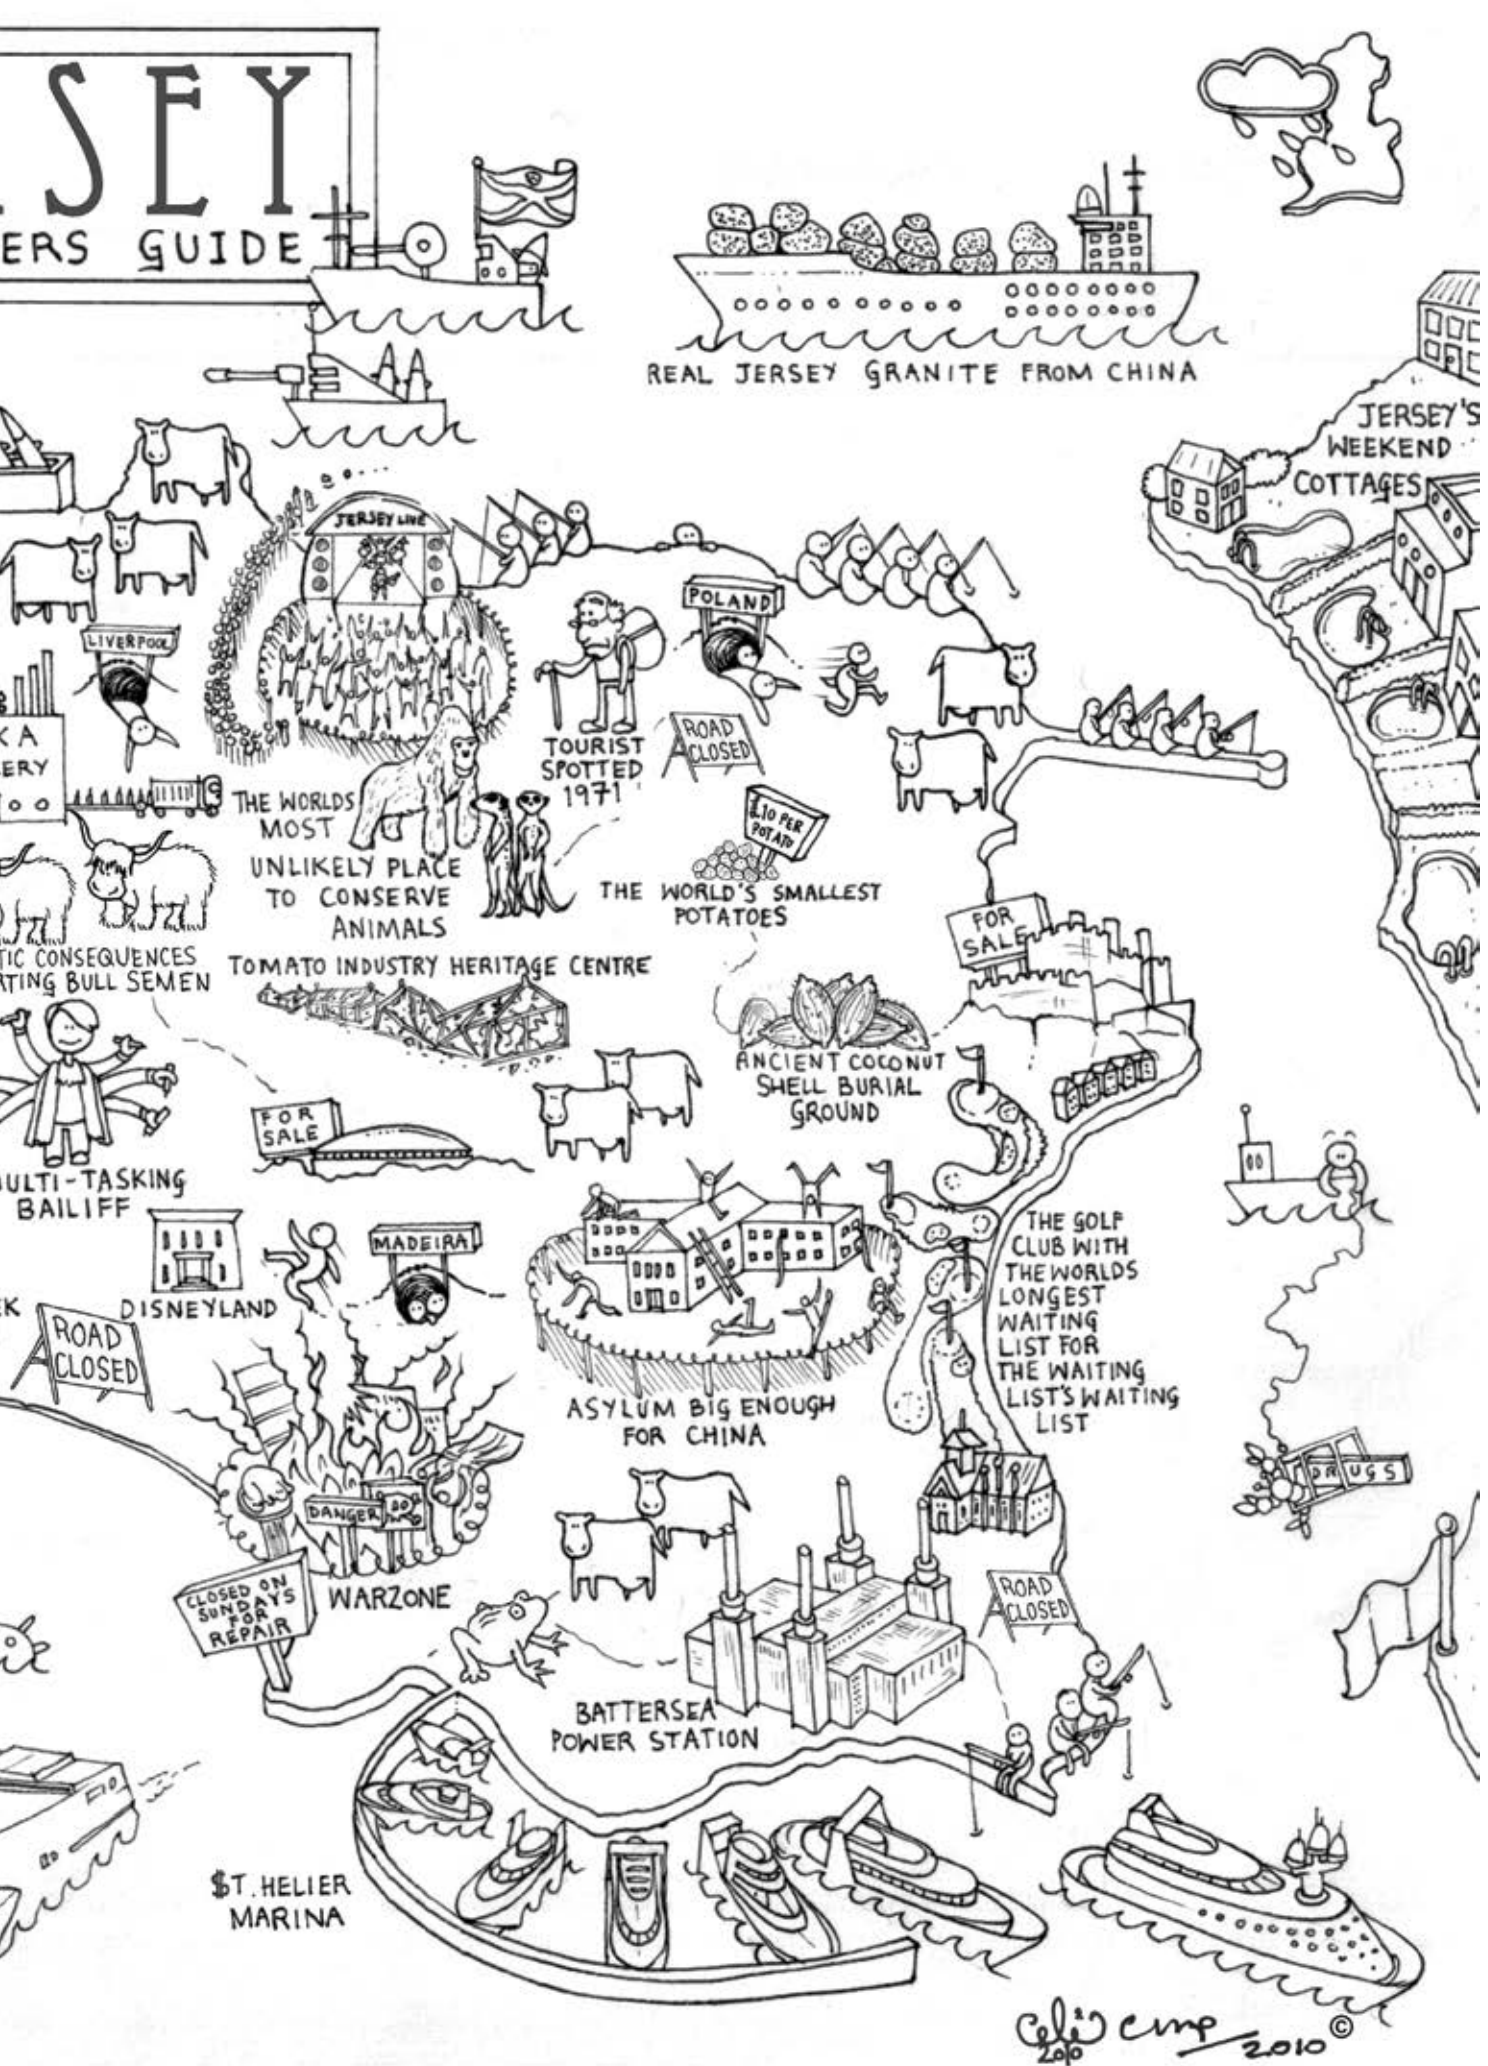 SEY
ERS GUIDE
REAL JERSEY GRANITE FROM CHINA
JERSEY'S
WEEKEND
COTTAGES
JERSEY LIVE
POLAND
LIVERPOOL
ROAD
CLOSED
TOURIST
SPOTTED
1971
KA
ERY
THE WORLDS
MOST
UNLIKELY PLACE
TO CONSERVE
ANIMALS
£10 PER
POTATO
THE WORLD'S SMALLEST
POTATOES
FOR
SALE
TIC CONSEQUENCES
RTING BULL SEMEN
TOMATO INDUSTRY HERITAGE CENTRE
ANCIENT COCONUT
SHELL BURIAL
GROUND
FOR
SALE
ULTI-TASKING
BAILIFF
MADEIRA
DISNEYLAND
EK
ROAD
CLOSED
THE GOLF
CLUB WITH
THE WORLDS
LONGEST
WAITING
LIST FOR
THE WAITING
LIST'S WAITING
LIST
ASYLUM BIG ENOUGH
FOR CHINA
DRUGS
DANGER
CLOSED ON
SUNDAYS
FOR
REPAIR
WARZONE
ROAD
CLOSED
BATTERSEA
POWER STATION
$T. HELIER
MARINA
2010
2010 ©